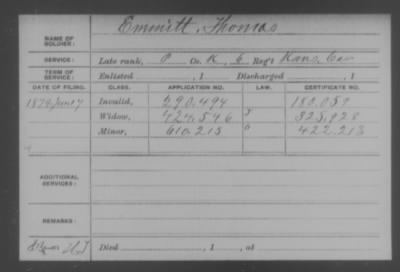 Emmitt, Thomas
NAME OF SOLDIER:
SERVICE: Late rank, P Co. K, 6 Reg't Kans. Cav
TERM OF SERVICE: Enlisted , 1 Discharged , 1
DATE OF FILING. CLASS. APPLICATION NO. LAW. CERTIFICATE NO.
Invalid, 290.494 180.059
Widow, 424.546
Minor, 610.215 422.213
ADDITIONAL SERVICES:
REMARKS:
Died , 1 , at